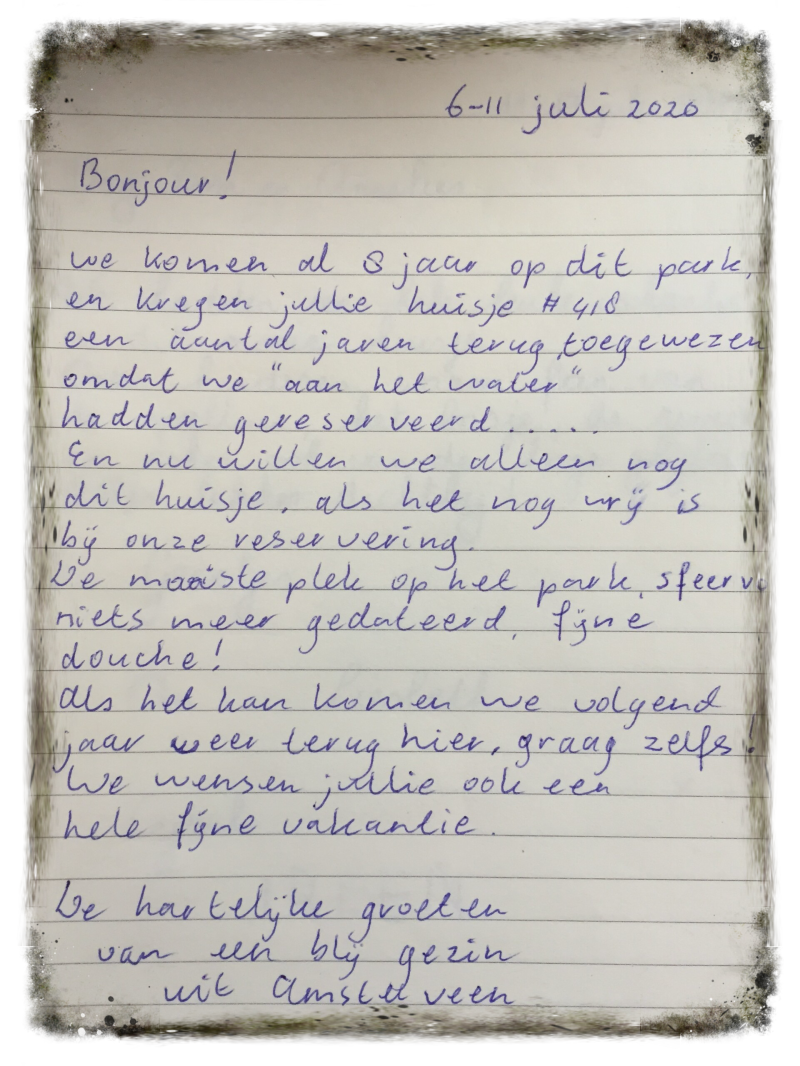 6-11 juli 2020
Bonjour!
we komen al 8 jaar op dit park,
en kregen jullie huisje #418
een aantal jaren terug toegewezen
omdat we "aan het water"
hadden gereserveerd.....
En nu willen we alleen nog
dit huisje, als het nog vrij is
bij onze reservering.
De mooiste plek op het park,
niets meer gedateerd, fijne
douche!
Als het kan komen we volgend
jaar weer terug hier, graag zelfs!
We wensen jullie ook een
hele fijne vakantie.
De hartelijke groeten
van een blij gezin
uit Amstelveen